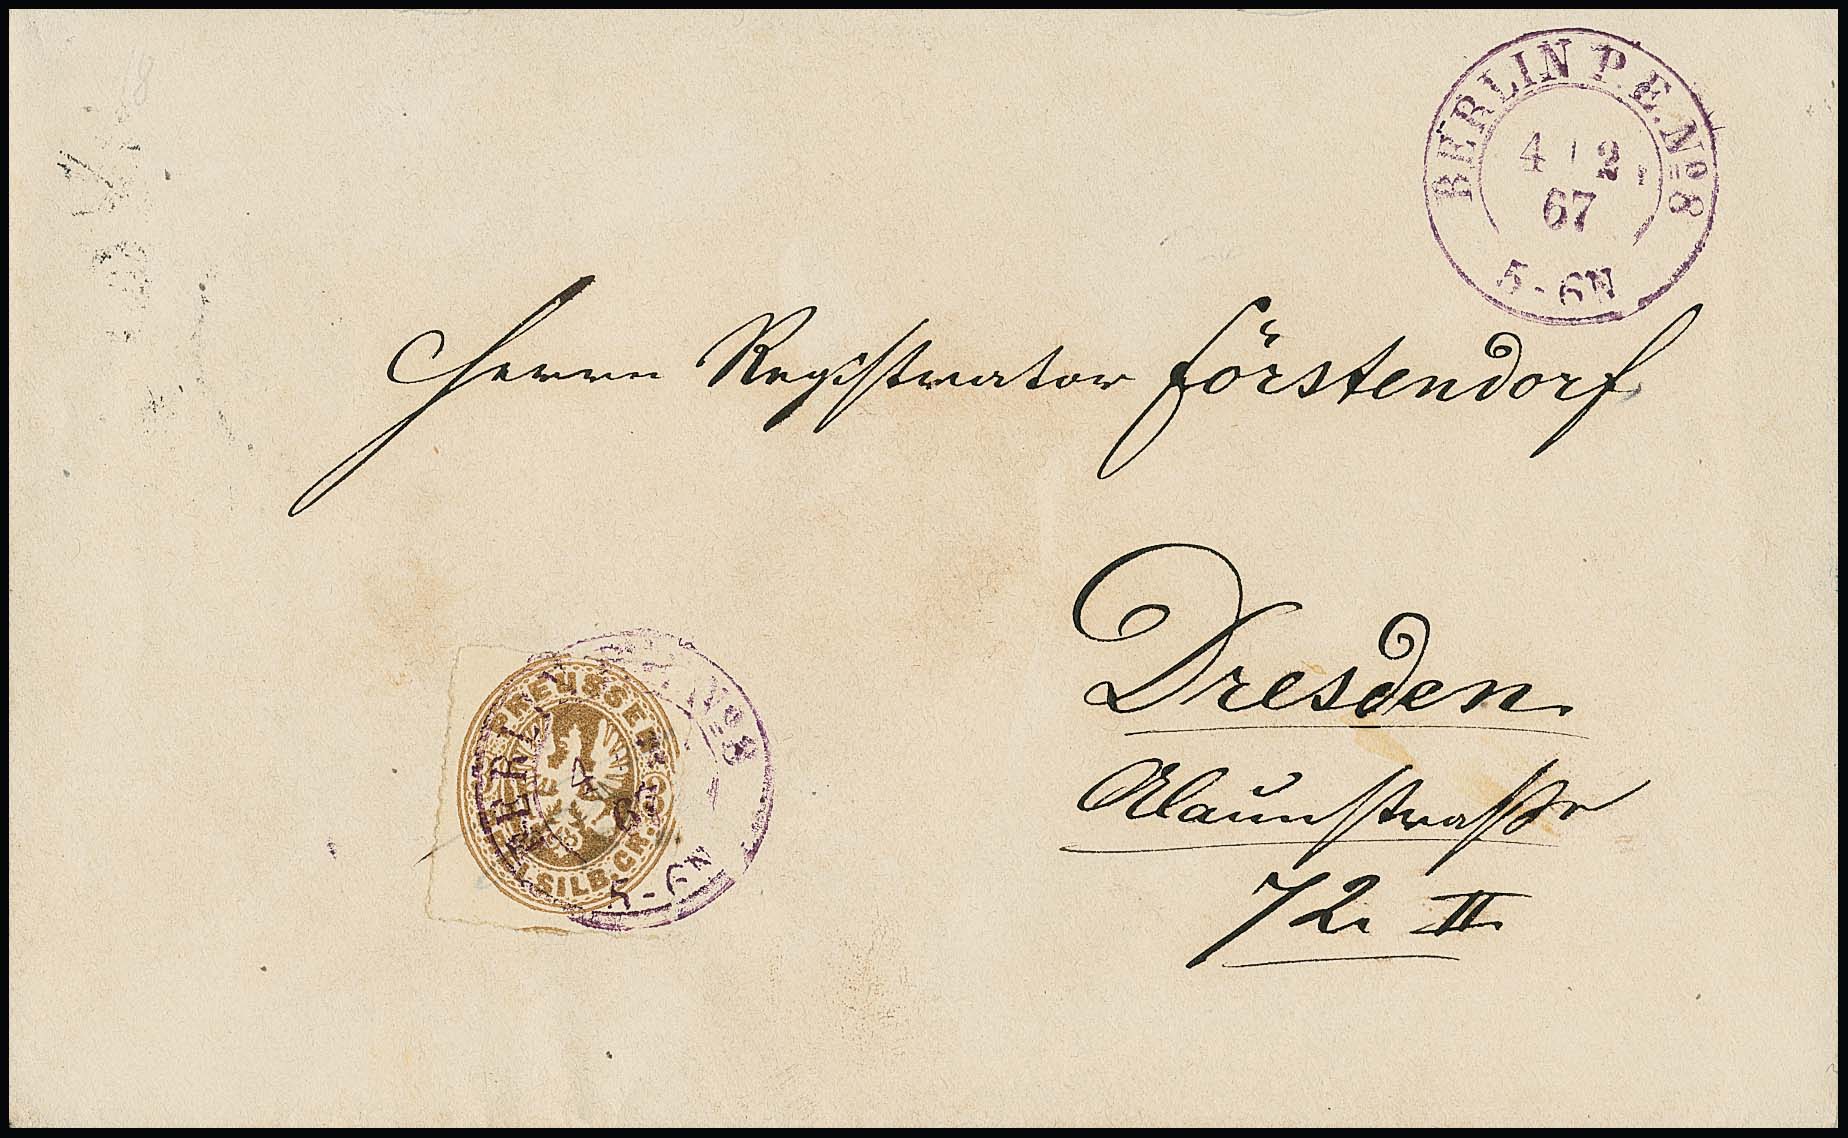 BERLIN P.E. Nº 8
4 2
67
5-6N
Herrn Registrator Förstendorf
Dresden.
Alaunstraße
72. II.
PREUSSEN
SILB. GR.
BERL Nº 8
4
67
5-6N